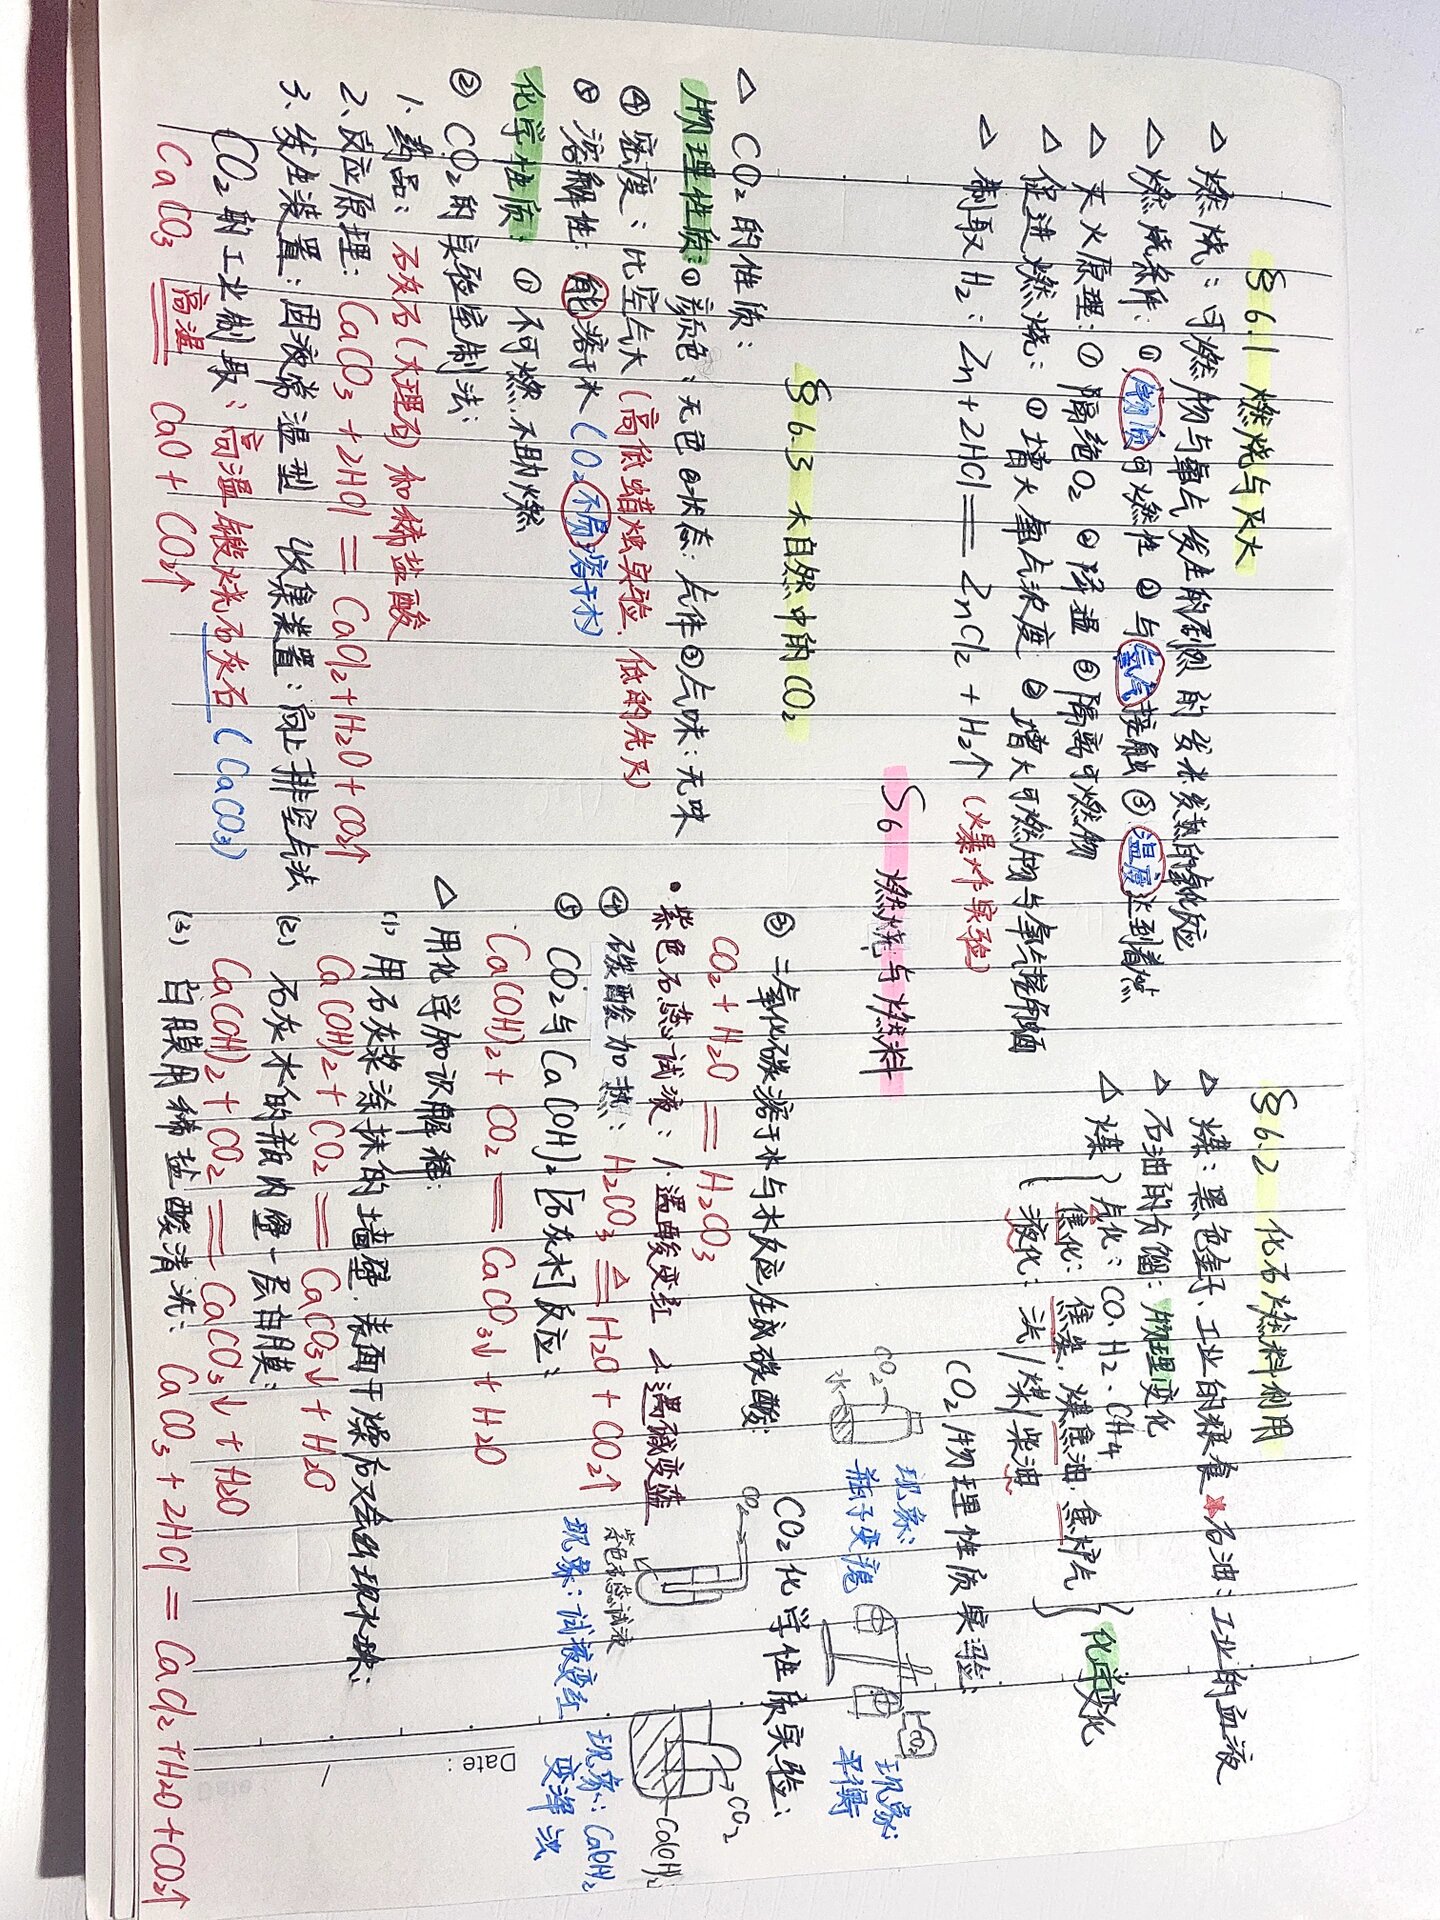 §6.1 燃烧与灭火
△ 燃烧：可燃物与氧气发生的剧烈的发光发热的氧化反应
△ 燃烧条件：① 物质可燃性 ② 与氧气接触 ③ 温度达到着燃
△ 灭火原理：① 隔绝O₂ ② 降温 ③ 隔离可燃物
△ 促进燃烧：① 增大氧气浓度 ② 增大可燃物与氧气接触面
△ 制取H₂：Zn+2HCl＝ZnCl₂+H₂↑（爆炸实验）
§6.2 化石燃料利用
△ 煤：黑色金子、工业的粮食 ★石油：工业的血液
△ 石油的分馏：物理变化
△ 煤
气化：CO、H₂、CH₄
焦化：焦炭、煤焦油、焦炉气
液化：汽/煤/柴油
化学变化
S6 燃烧与燃料
§6.3 大自然中的CO₂
△ CO₂的性质：
物理性质：① 颜色：无色 ②状态：气体 ③气味：无味
④ 密度：比空气大（高低蜡烛实验，低的先灭）
⑤ 溶解性：能溶于水（O₂不易溶于水）
化学性质：① 不可燃、不助燃
② CO₂的实验室制法：
1、药品：石灰石(大理石)和稀盐酸
2、反应原理：CaCO₃+2HCl＝CaCl₂+H₂O+CO₂↑
3、发生装置：固液常温型 收集装置：向上排空气法
CO₂的工业制取：高温煅烧石灰石（CaCO₃）
CaCO₃ 高温 CaO+CO₂↑
CO₂物理性质实验：
CO₂
水
现象：
瓶子变瘪
CO₂
现象：
平衡
③ 二氧化碳溶于水与水反应生成碳酸：
CO₂+H₂O＝H₂CO₃
• 紫色石蕊试液：1、遇酸变红 2、遇碱变蓝
④ 碳酸加热：H₂CO₃ △ H₂O+CO₂↑
⑤ CO₂与Ca(OH)₂[石灰水]反应：
Ca(OH)₂+CO₂＝CaCO₃↓+H₂O
△ 用化学知识解释：
(1) 用石灰浆涂抹的墙壁，表面干燥后又会出现水珠：
Ca(OH)₂+CO₂＝CaCO₃↓+H₂O
(2) 石灰水的瓶内壁一层白膜：
Ca(OH)₂+CO₂＝CaCO₃↓+H₂O
(3) 白膜用稀盐酸清洗：CaCO₃+2HCl＝CaCl₂+H₂O+CO₂↑
CO₂化学性质实验：
CO₂
紫色石蕊试液
现象：试液变红
CO₂
Ca(OH)₂
现象：Ca(OH)₂
变浑浊
Date: /